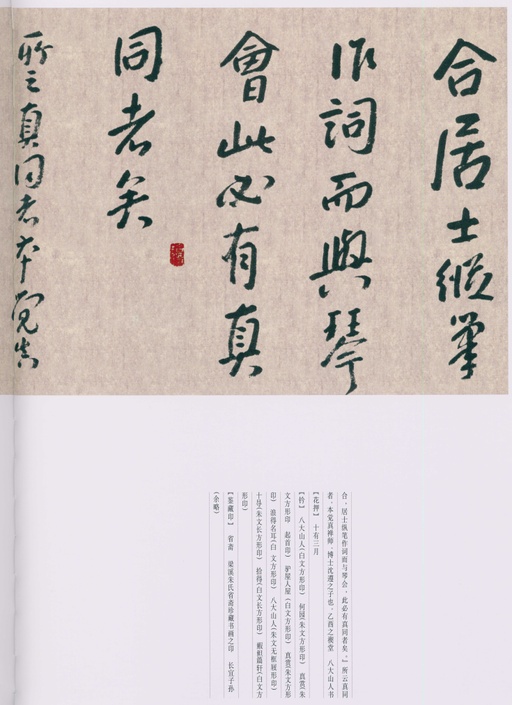 合居士縱筆
作詞而與琴
會此必有真
同者矣
所云真同者本覺真
合，居士纵笔作词而与琴会，此必有真同者矣。』所云真同
者，本觉真禅师，博士沈遵之子也。乙酉之禊堂　八大山人书
【花押】　十有三月
【钤】　八大山人(白文方形印)　何园(朱文方形印)　真赏(朱
文方形印　起首印)　驴屋人屋(白文方形印)　真赏(朱文方形
印)　浪得名耳(白 文方形印)　八大山人(朱文无框屐形印)
十㝵(朱文长方形印)　拾得(白文长方形印)　遽𨓏篇轩(白文方
形印)
【鉴藏印】　省斋　梁溪朱氏省斋珍藏书画之印　长宜子孙
(余略)